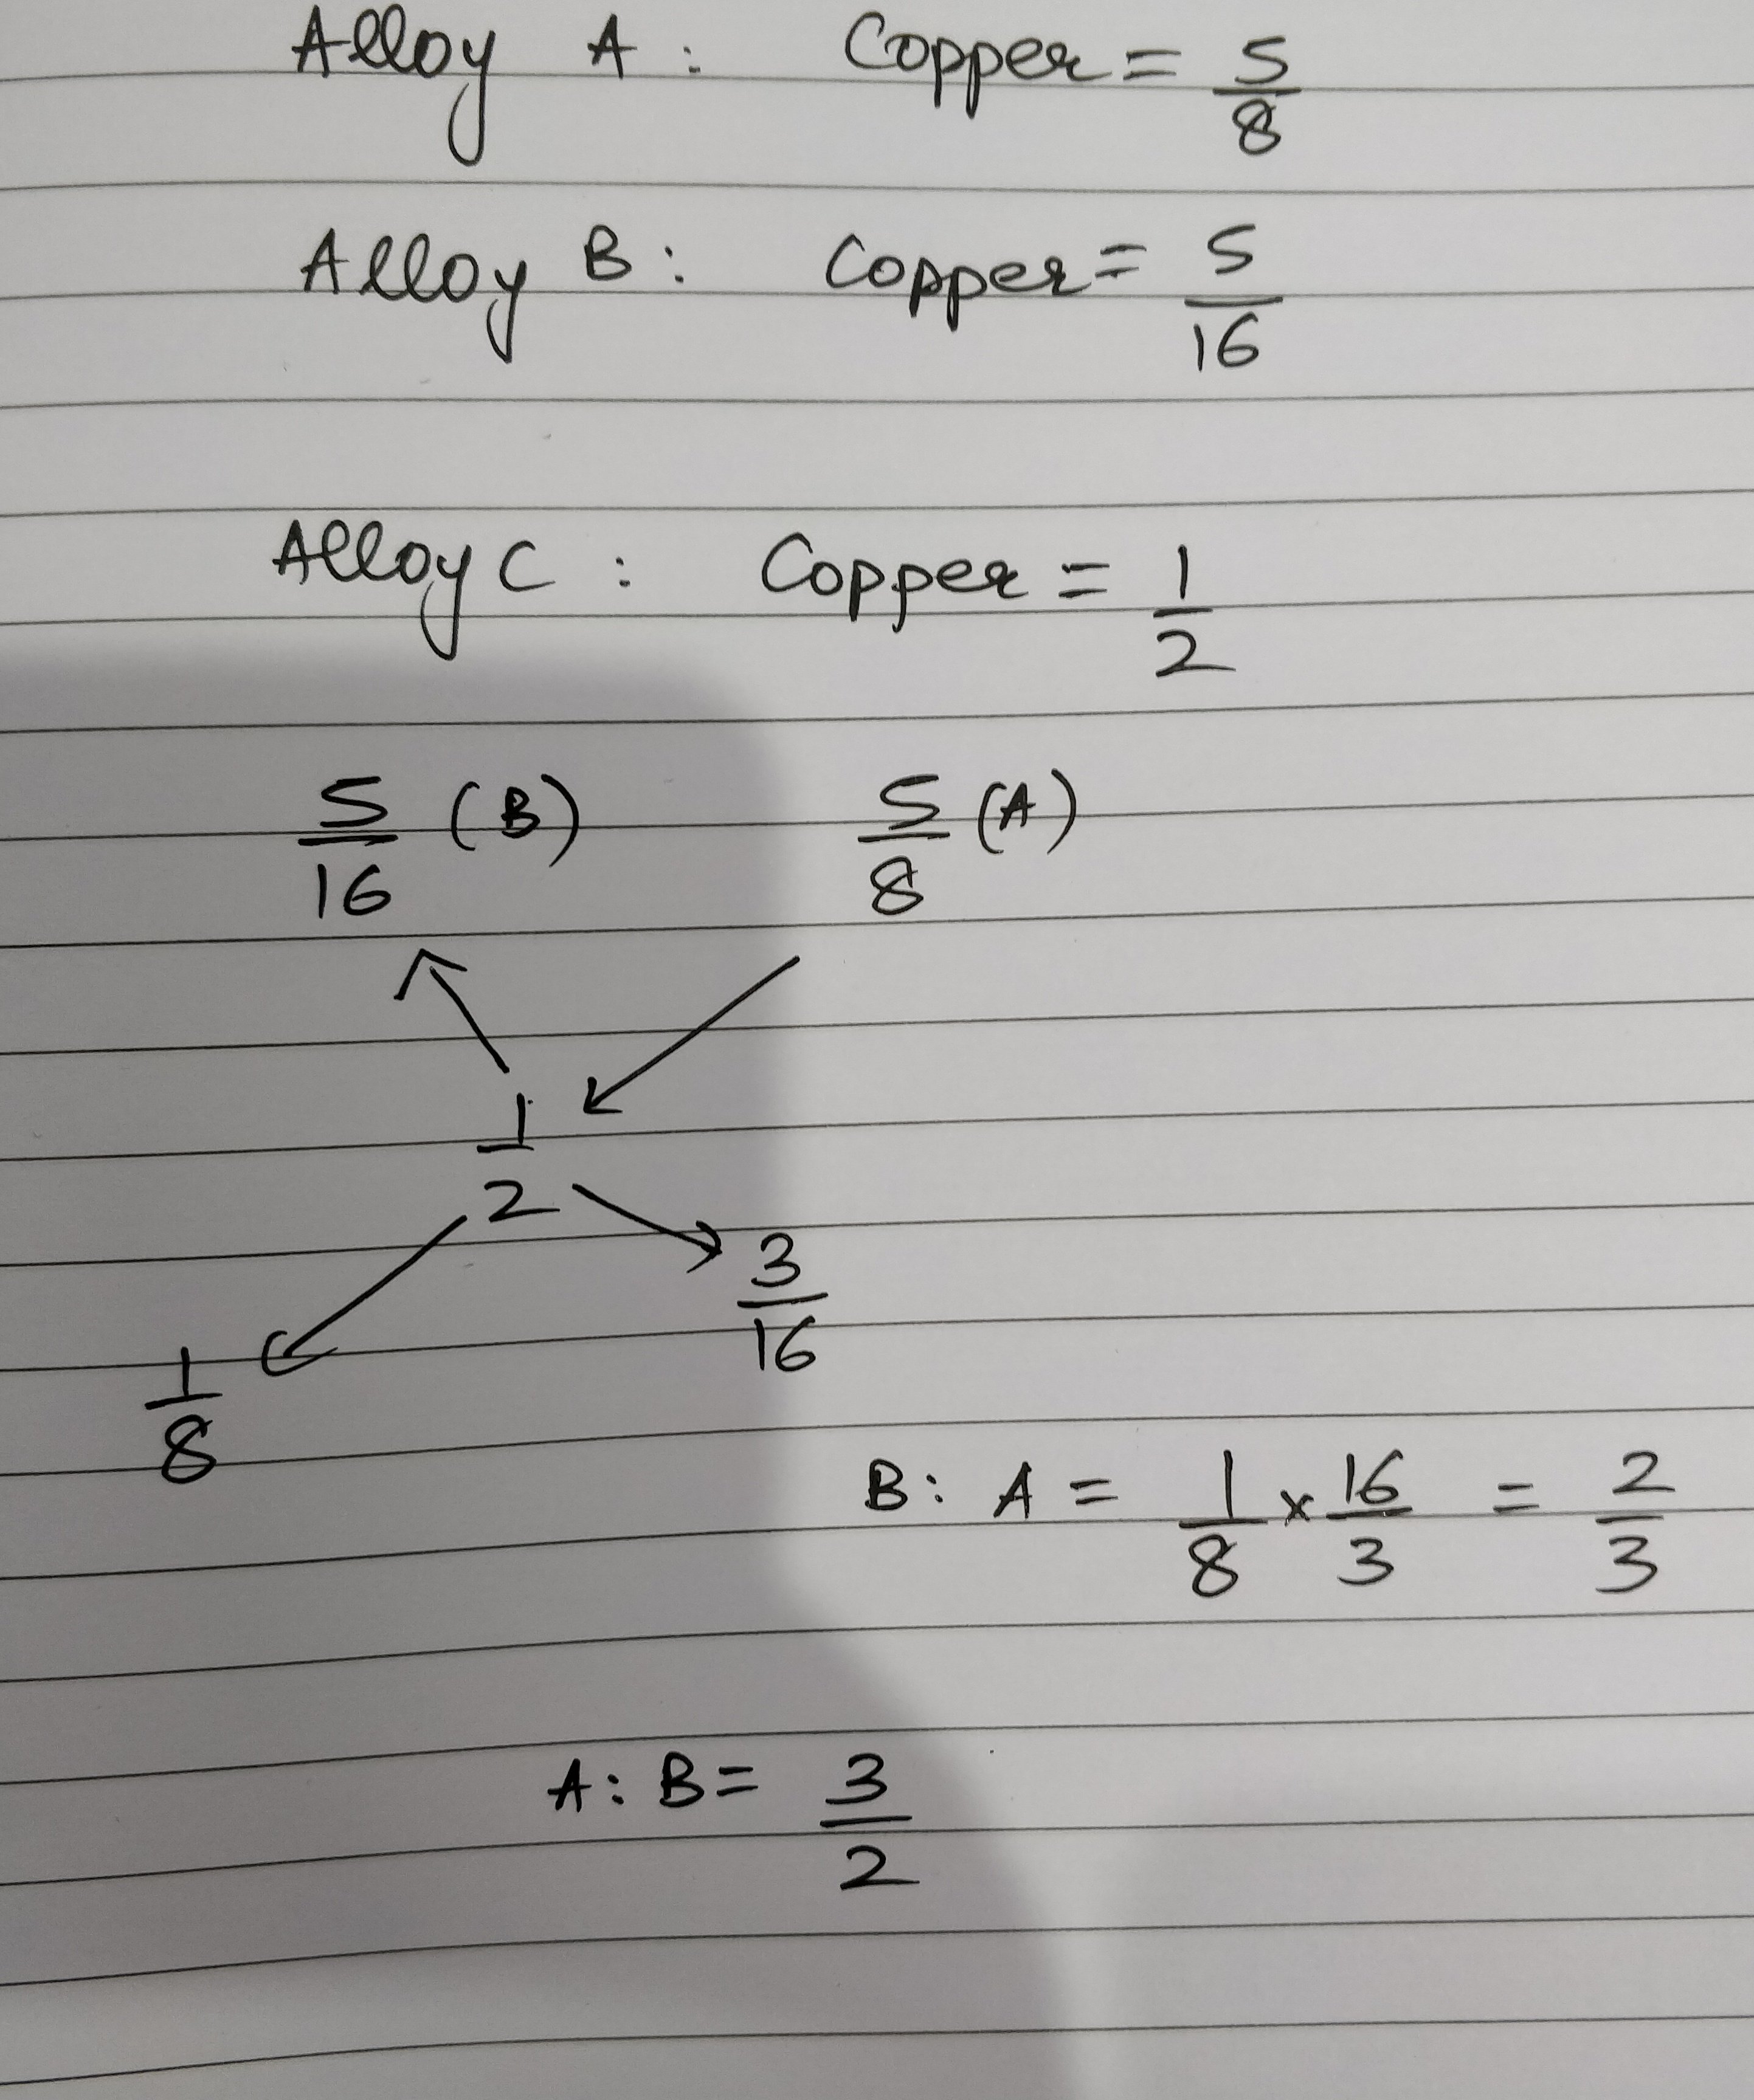 Alloy A : Copper = 5/8
Alloy B : Copper = 5/16
Alloy C : Copper = 1/2
5/16 (B) 5/8 (A)
1/2
1/8 3/16
B : A = 1/8 x 16/3 = 2/3
A : B = 3/2